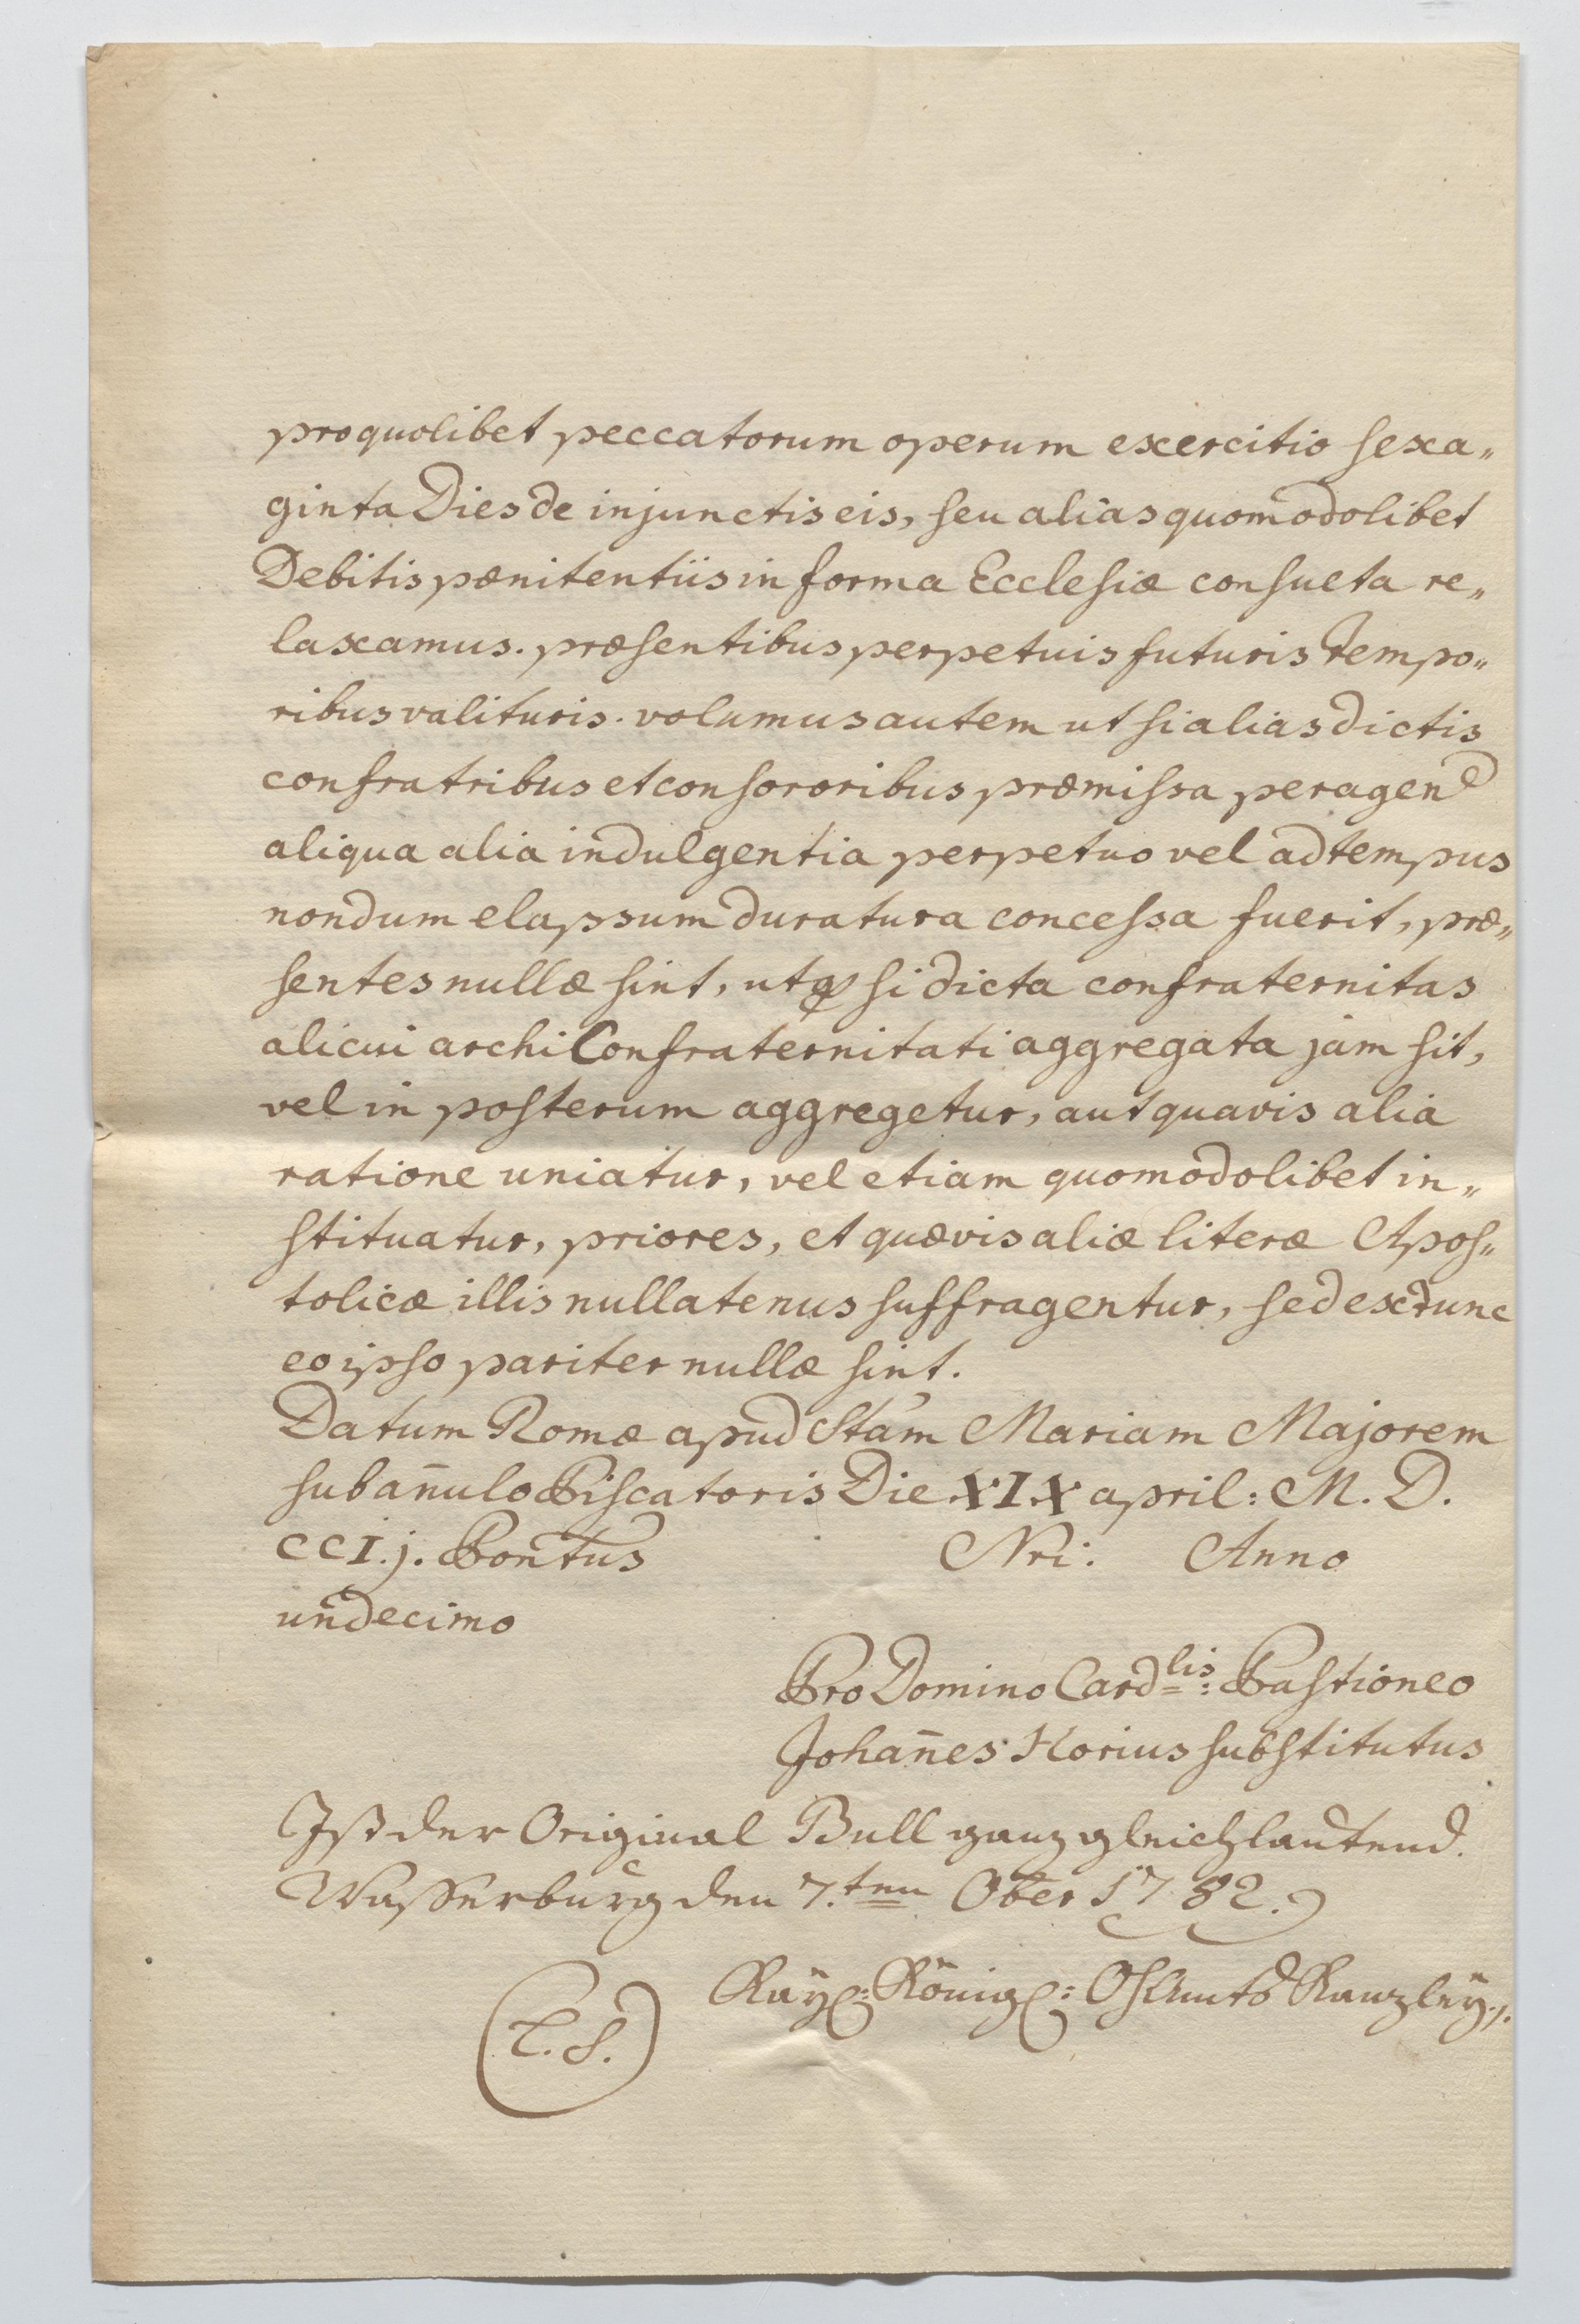 pro quolibet peccatorum operum exercitio sexa„
ginta Dies de injunctis eis, seu alias quomodolibet
Debitis pænitentiis in forma Ecclesiæ consueta re„
laxamus. præsentibus perpetuis futuris tempo„
ribus valituris. volumus autem ut si alias dictis
confratribus et consororibus præmissa peragend
aliqua alia indulgentia perpetuo vel ad tempus
nondum elapsum duratura concessa fuerit, præ„
sentes nullæ sint, utq si dicta confraternitas
alicui archiConfraternitati aggregata jam sit,
vel in posterum aggregetur, aut quavis alia
ratione uniatur, vel etiam quomodolibet in„
stituatur, priores, et quævis aliæ literæ Apos„
tolicæ illis nullatenus suffragentur, sed ex tunc
eo ipso pariter nullæ sint.
Datum Romæ apud Stam Mariam Majorem
sub an̄ulo Piscatoris Die XIX april: M. D.
CCI.j. Pontus Nri: Anno
undecimo
Pro Domino Cardlis: Pastioneo
Johan̄es Horius substitutus
Ist der Original Bull ganz gleichlautend.
Wasserburg den 7.ten 8ber 1782.
Kay: König: Amts Kanzley
(L. S.)